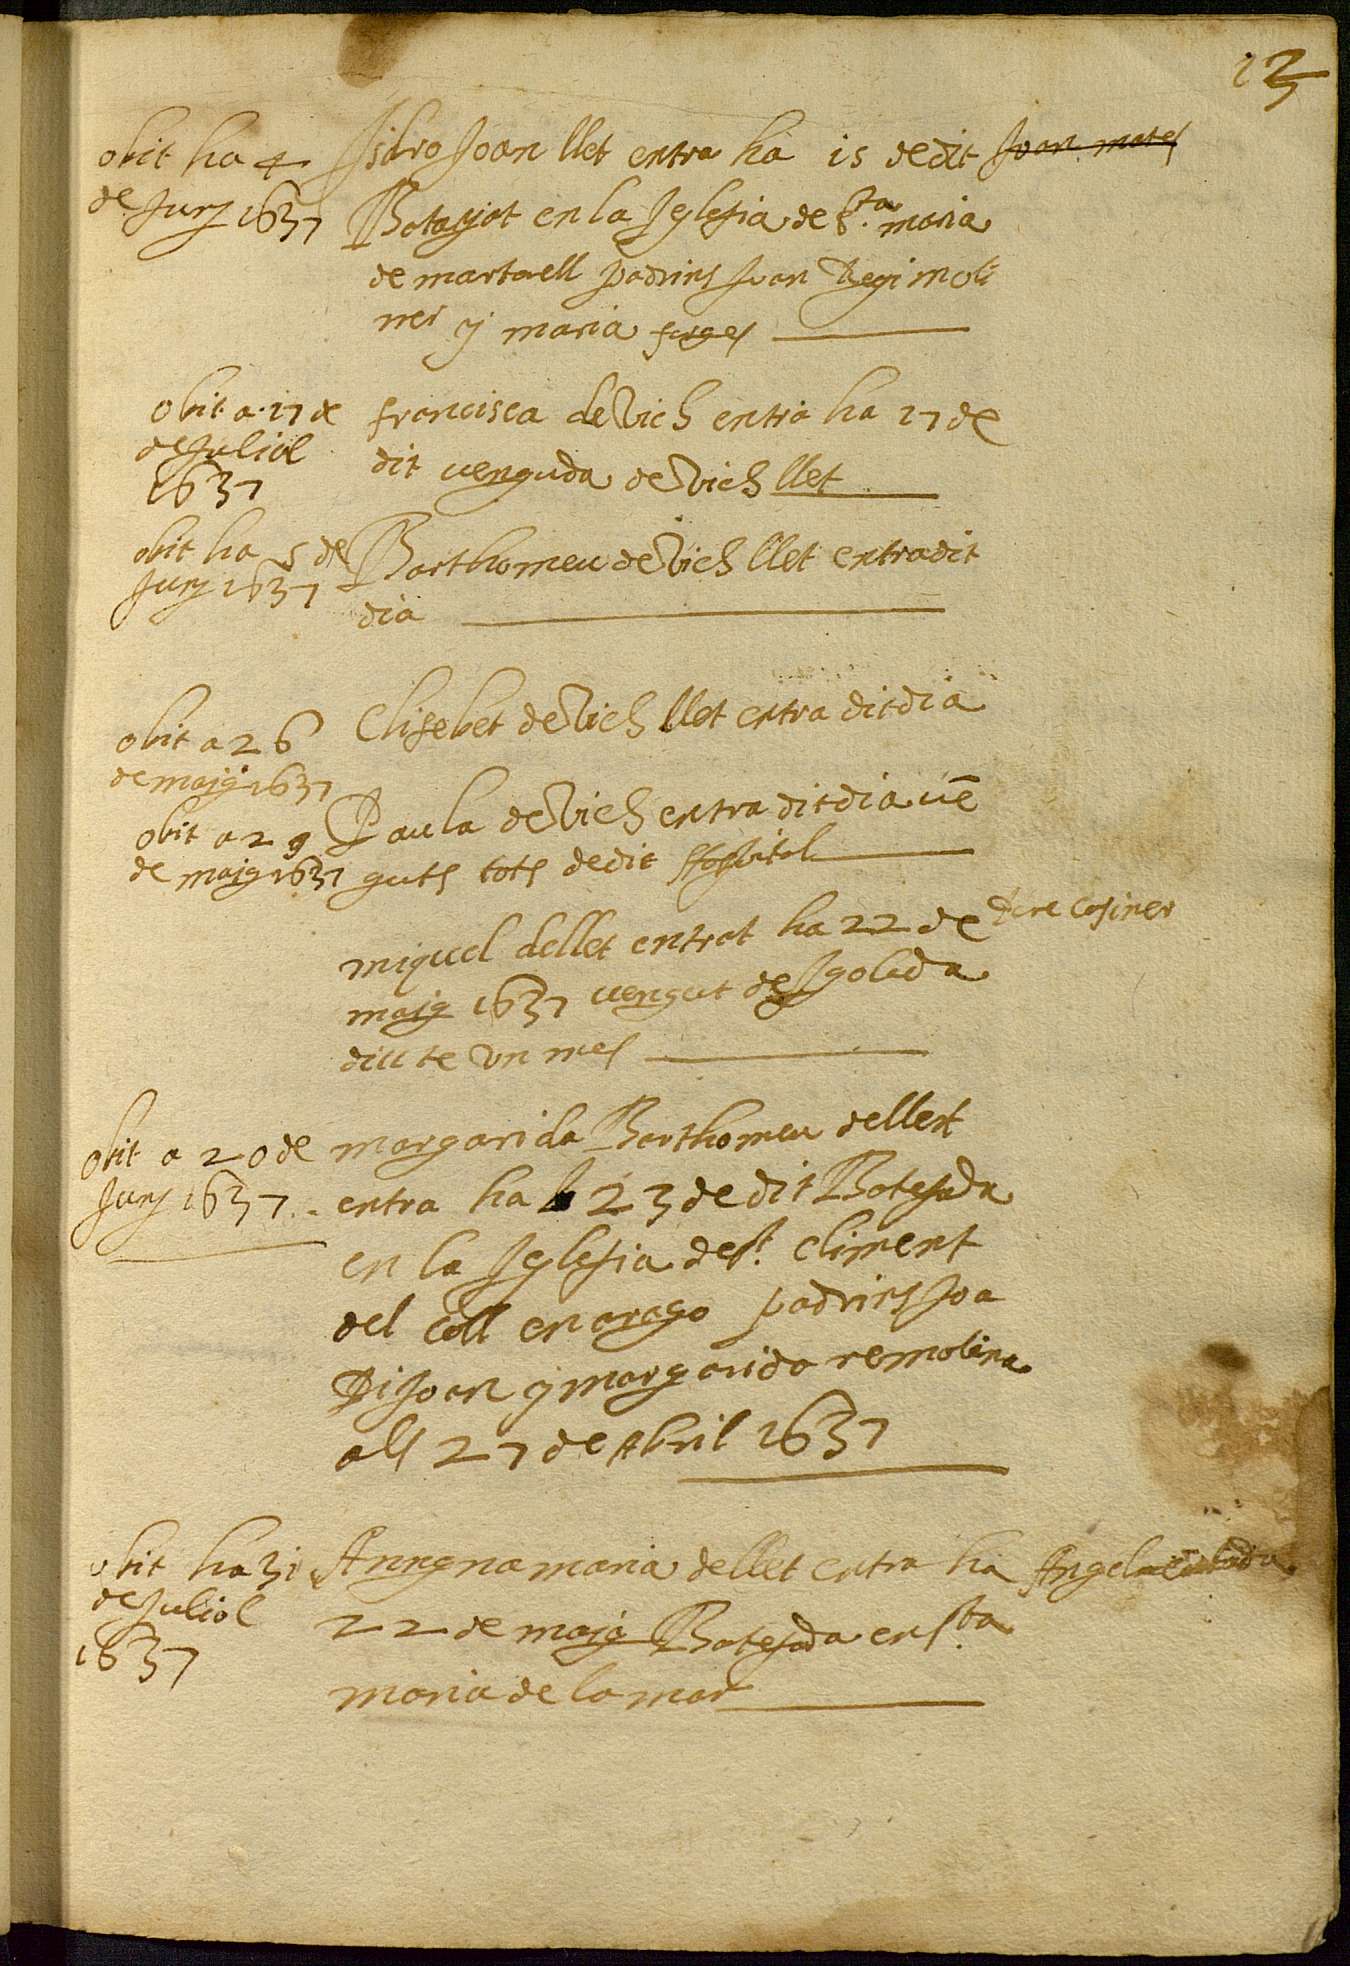 13
obit ha 4
de Juny 1637
Isidro Joan llet entra ha 15 de dit Joan mates
Batajat en la Iglesia de Sta. maria
de martorell padrins Juan Regi moli
ner y maria
obit a 17 de
de Juliol
1637
francisca de Vich entra ha 17 de
dit venguda de Vich llet
obit ha 5 de
Juny 1637
Barthomeu de Vich llet entra dit
dia
obit a 26
de maig 1637
Elisebet de Vich llet entra dit dia
obit a 29
de maig 1637
Paula de Vich entra dit dia vē
guts tots de dit Hospital
miquel de llet entrat ha 22 de Pere Cosiner
maig 1637 vengut de Igolada
diu te vn mes
obit a 20 de
Juny 1637
margarida Barthomeu de llet
entra ha 23 de dit Batejada
en la Iglesia de st. Climent
del Coll en arago padrins Joa
Di Joan y margarida remolina
als 27 de Abril 1637
obit ha 31
de Juliol
1637
Anngna maria de llet entra ha Angela
22 de maig Batejada en sta.
maria de la mar